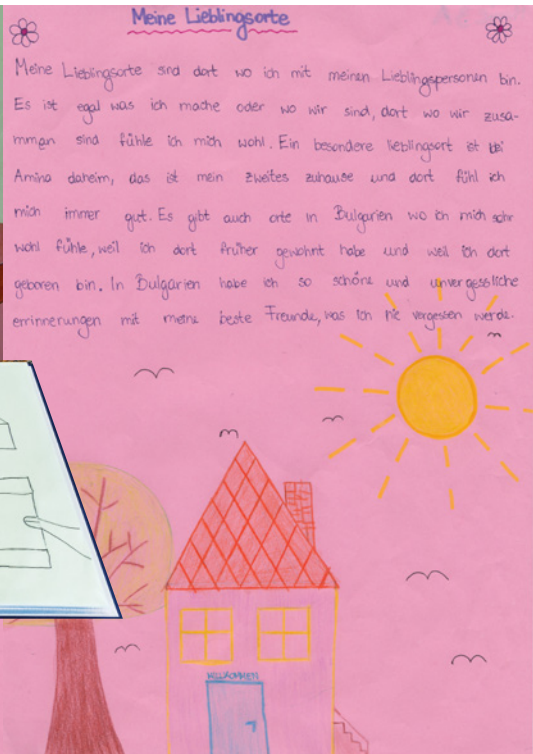 Meine Lieblingsorte
Meine Lieblingsorte sind dort wo ich mit meinen Lieblingspersonen bin.
Es ist egal was ich mache oder wo wir sind, dort wo wir zusa-
mman sind fühle ich mich wohl. Ein besondere lieblingsort ist bei
Amina daheim, das ist mein zweites zuhause und dort fühl ich
mich immer gut. Es gibt auch orte in Bulgarien wo ich mich sehr
wohl fühle, weil ich dort früher gewohnt habe und weil ich dort
geboren bin. In Bulgarien habe ich so schöne und unvergessliche
errinnerungen mit meine beste Freunde, was ich nie vergessen werde.
WILLKOMMEN